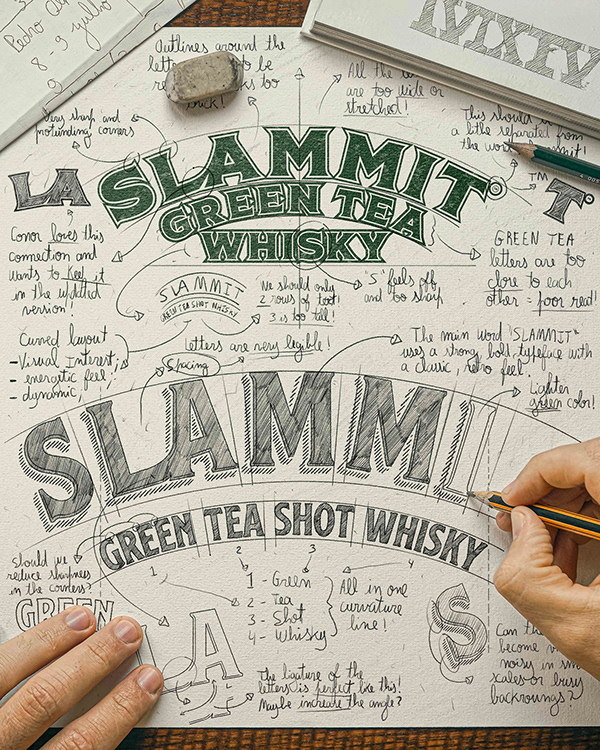 Pedro
8 - 9 julho
Outlines around the
letters to be
too
thick!
All the
are too wide or
stretched!
This should be
a little separated from
the word Slammit!
Very sharp and
protunding corners
LA
SLAMMIT®
GREEN TEA
WHISKY
TM
T
Conor loves this
connection and
wants to keep it
in the updated
version!
SLAMMIT
GREEN TEA SHOT WHISKY
We should only
2 rows of text!
3 is too tall!
"S" feels off
and too sharp
GREEN TEA
letters are too
close to each
other = poor read!
Curved layout
- Visual Interest;
- energetic feel;
- dynamic;
letters are very legible!
Spacing
The main word "SLAMMIT"
uses a strong, bold, typeface with
a classic, retro feel!
Lighter
green color!
SLAMMI
GREEN TEA SHOT WHISKY
1
2
3
4
Should we
reduce sharpness
in the corners?
GREEN
1 - Green
2 - Tea
3 - Shot
4 - Whisky
All in one
curvature
line!
LA
S
The ligature of the
letters is perfect like this!
Maybe increase the angle?
Can th
become
noisy in sm
scales or busy
backrounds?